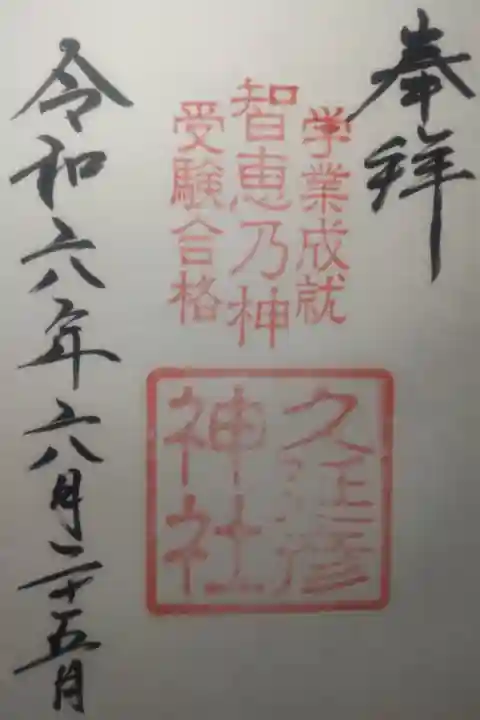 奉拝
学業成就
智恵乃神
受験合格
久延彦
神社
令和六年六月二十五月